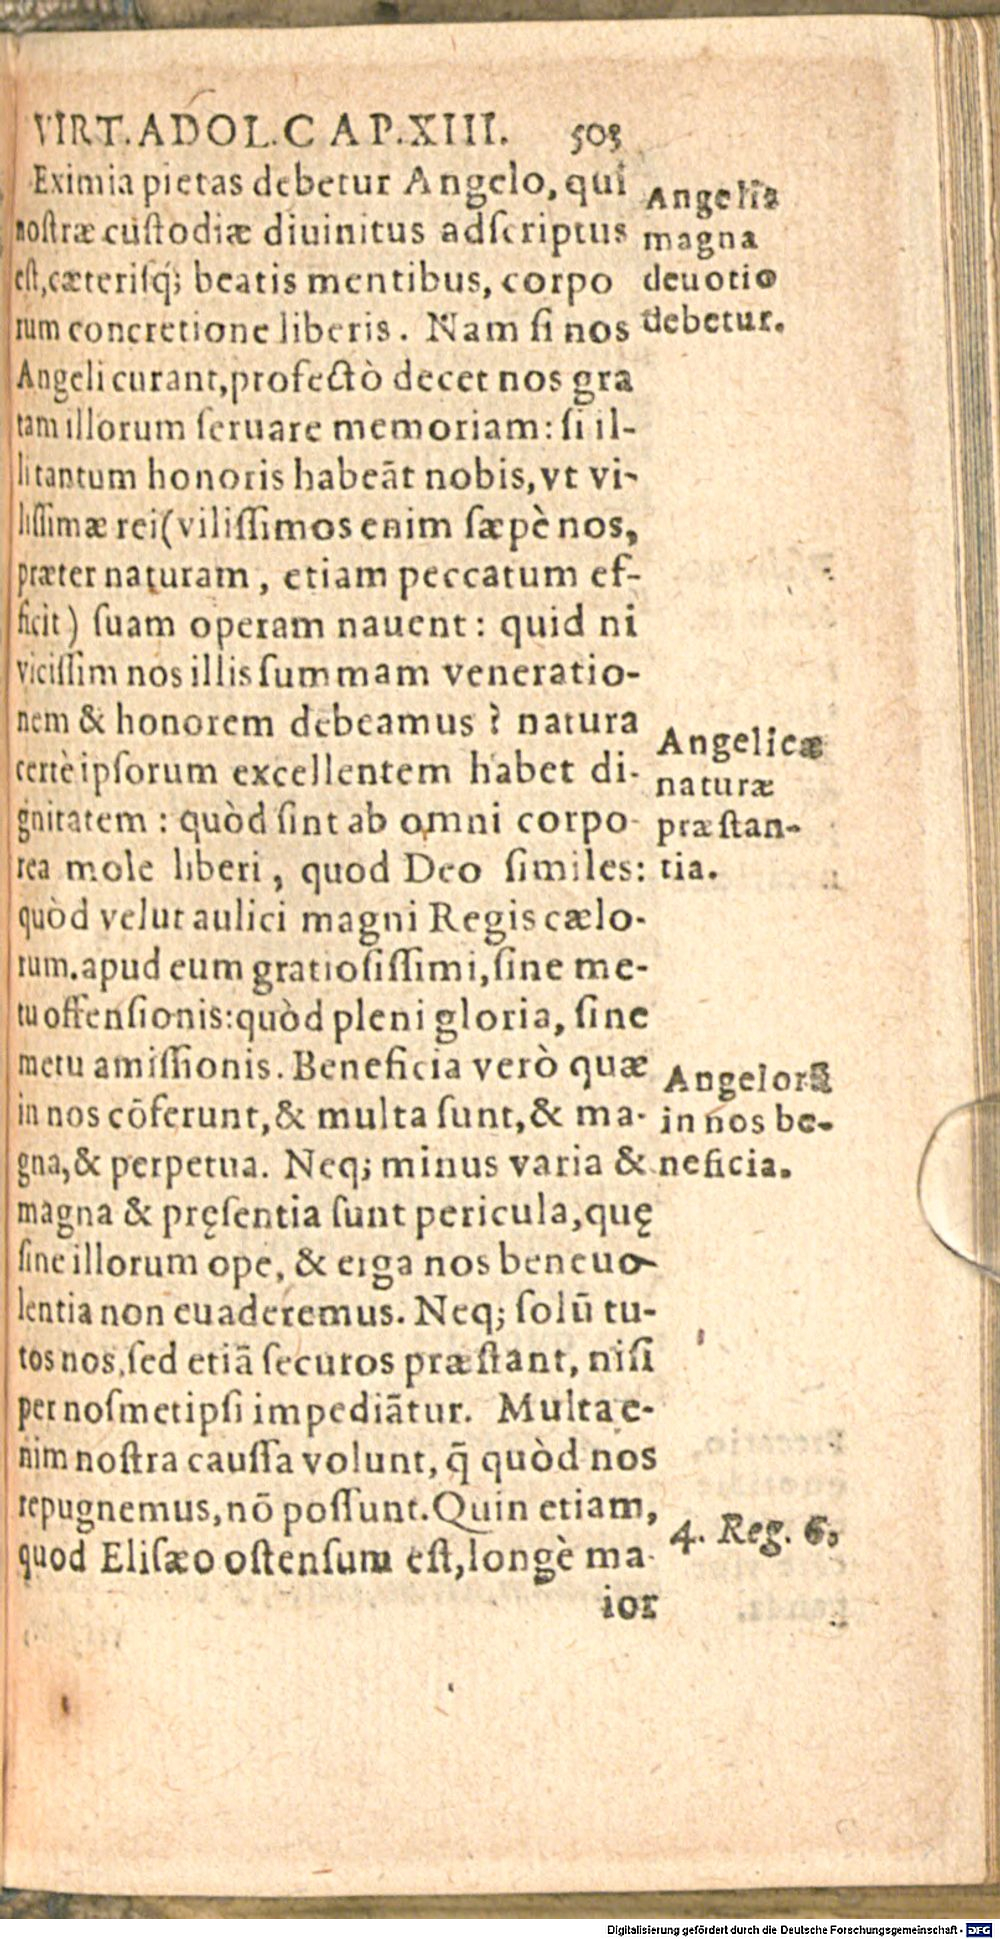 VIRT. ADOL. CAP. XIII. 503
Eximia pietas debetur Angelo, qui
noſtræ cuſtodiæ diuinitus adſcriptus
eſt, cæteriſq́; beatis mentibus, corpo
rum concretione liberis. Nam ſi nos
Angeli curant, profectò decet nos gra
tam illorum ſeruare memoriam: ſi il-
li tantum honoris habeãt nobis, vt vi-
liſſimæ rei (viliſſimos enim ſæpè nos,
præter naturam, etiam peccatum ef-
ficit) ſuam operam nauent: quid ni
viciſſim nos illis ſummam veneratio-
nem & honorem debeamus? natura
certè ipſorum excellentem habet di-
gnitatem: quòd ſint ab omni corpo-
rea mole liberi, quod Deo ſimiles:
quòd velut aulici magni Regis cælo-
rum. apud eum gratioſiſſimi, ſine me-
tu offenſionis: quòd pleni gloria, ſine
metu amiſſionis. Beneficia verò quæ
in nos cõferunt, & multa ſunt, & ma-
gna, & perpetua. Neq; minus varia &
magna & pręſentia ſunt pericula, quę
ſine illorum ope, & erga nos beneuo-
lentia non euaderemus. Neq; ſolũ tu-
tos nos, ſed etiã ſecuros præſtant, niſi
per noſmetipſi impediãtur. Multa e-
nim noſtra cauſſa volunt, q̃ quòd nos
repugnemus, nõ poſſunt. Quin etiam,
quod Eliſæo oſtenſum eſt, longè ma-
ior
Angelis
magna
deuotio
debetur.
Angelicæ
naturæ
præſtan-
tia.
Angelorũ
in nos be-
neficia.
4. Reg. 6.
Digitalisierung gefördert durch die Deutsche Forschungsgemeinschaft - DFG